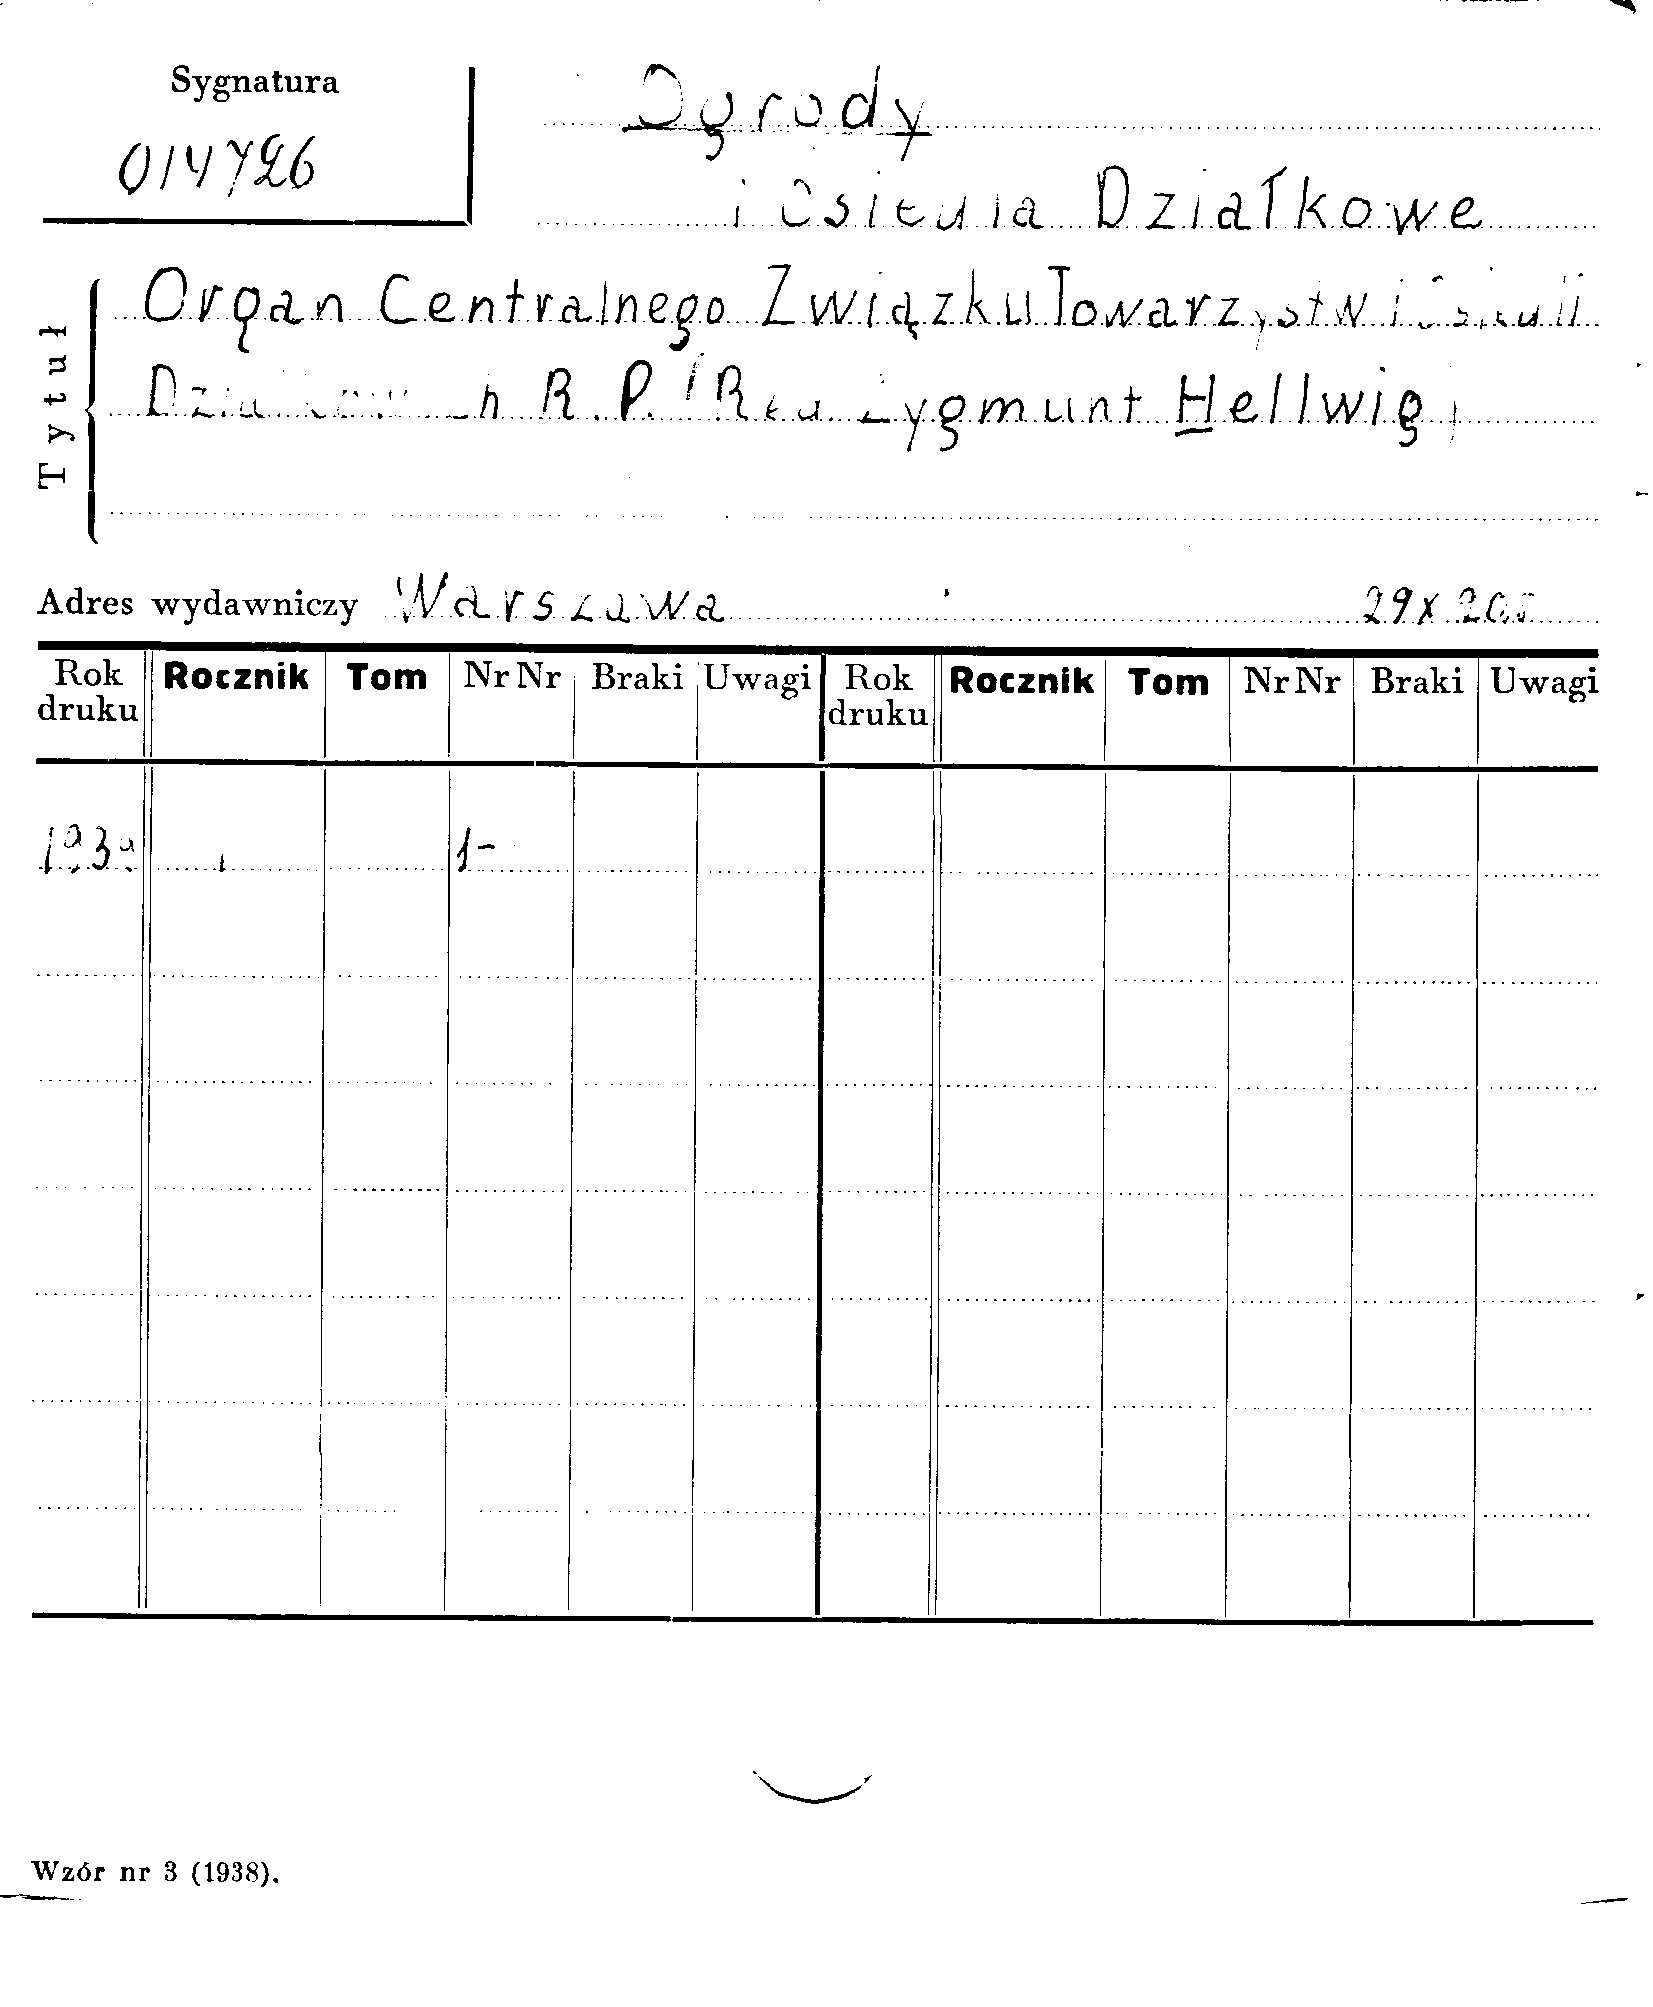 Sygnatura
014726
Ogrody
i Osiedla Działkowe
Tytuł
Organ Centralnego Związku Towarzystw i Osiedli
Działkowych R. P. /Red. Zygmunt Hellwig/
Adres wydawniczy Warszawa 29 x 20,5
Rok druku Rocznik Tom Nr Nr Braki Uwagi Rok druku Rocznik Tom Nr Nr Braki Uwagi
1-
Wzór nr 3 (1938).